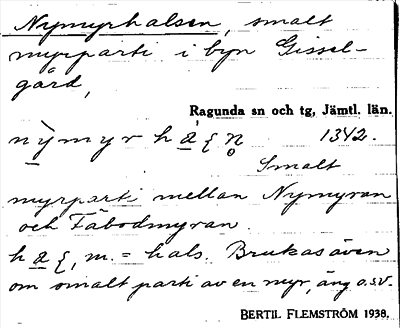 Nymyrhalsen, smalt
myrparti i byn Gissel-
gård,
Ragunda sn och tg, Jämtl. län.
1342.
Smalt
myrparti mellan Nymyran
och Fäbodmyran.
m. = hals. Brukas även
om smalt parti av en myr, äng o.s.v.
BERTIL FLEMSTRÖM 1938.